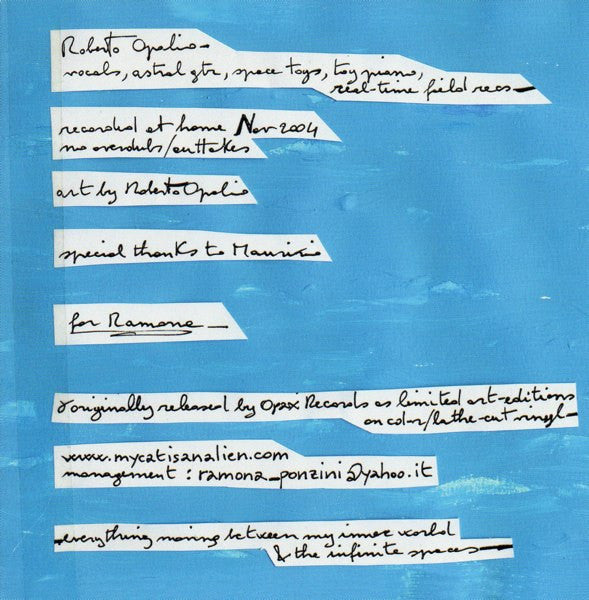 Roberto Opalio –
vocals, astral gtr, space toys, toy piano,
real-time field recs –
recorded at home Nov 2004
no overdubs/outtakes
art by Roberto Opalio
special thanks to Maurizio
for Ramona –
originally released by Opax Records as limited art-editions
on color/lathe-cut vinyl –
www.mycatisanalien.com
management : ramona_ponzini@yahoo.it
– everything moving between my inner world
& the infinite spaces –